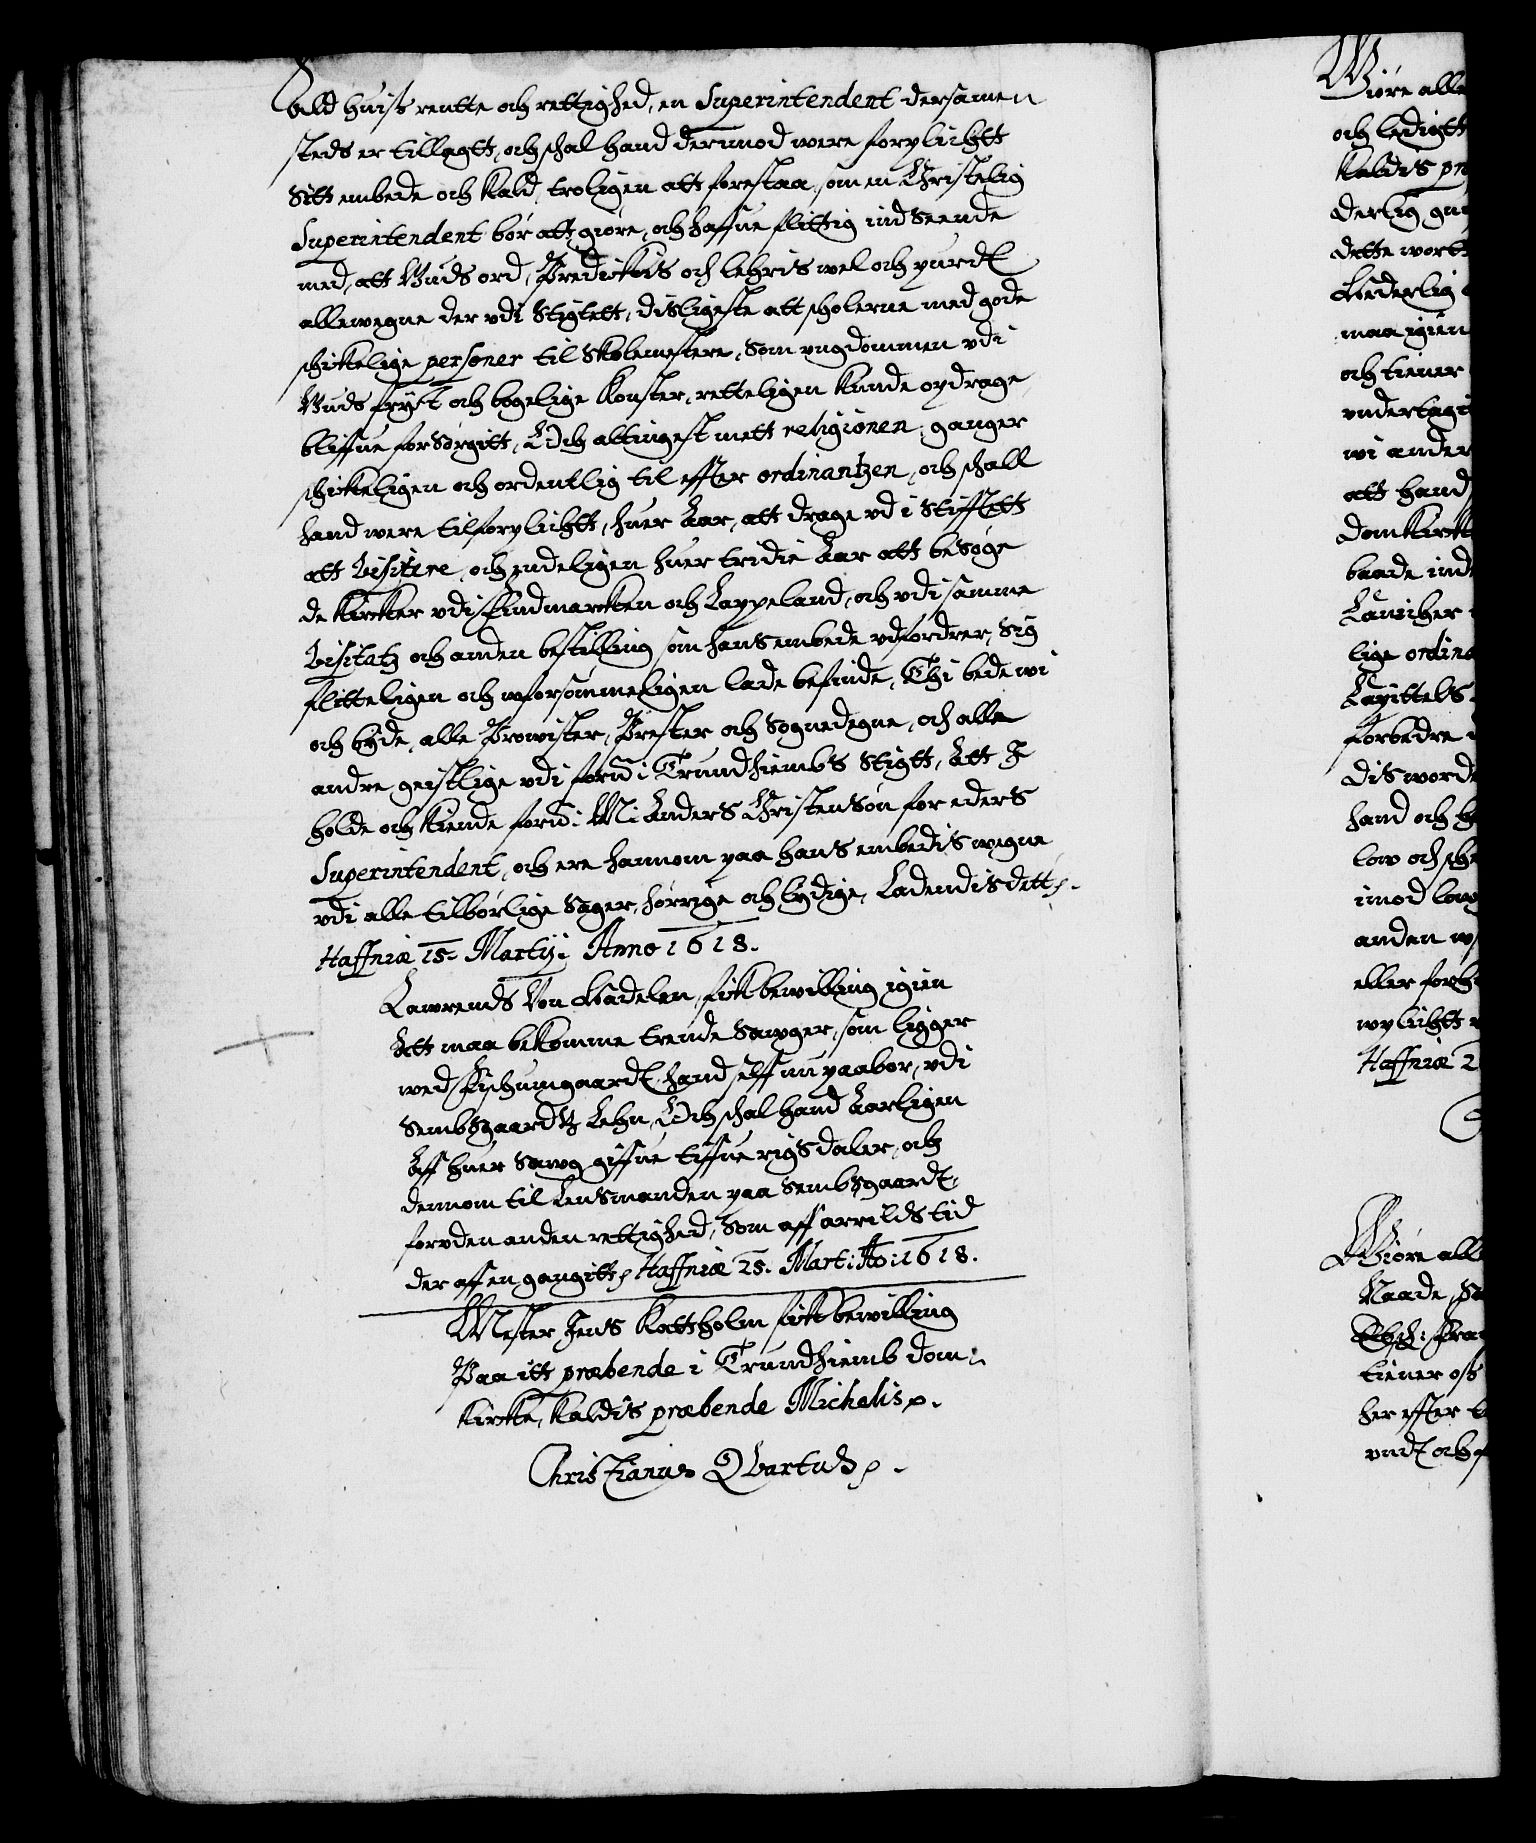 ald huis rentte och rettighed, en Superintendent dersamen
steds er tillagtt, och schal hand derimod were forplichtt
Sitt embede och Kald, troligen att forestaa, som en Christelig
Superintendent bør att giøre, och haffue flittig ind Seende
med, att Guds ord, Predickis och lehris wel och purdt
allewegne der vdi Stigtett, disligeste att scholerne med gode
schickelige personer til Skolemestere, Som vngdommen vdi
Guds frÿct och bogelige Konster, retteligen Kunde opdrage
bliffue forsørgitt, Och altingest mett religionen, ganger
schickeligen och ordentlig til effter ordinantzen, och schall
hand were tilforplichtt, huer Aar, att drage vd i Stifftett
att Visitere, och endeligen huer tridie Aar att besøge
de Kircker vdi Findmarcken och Lappeland, och vdi samme
Visitatz och anden bestilling som hans embede vdfordrer, Sig
flitteligen och wforsømmeligen lade befinde, Thi bede wi
och byde, alle Prowister, Prester och Sognedegne, och alle
andre geistlige vdi forn: Trundhiembs Stigtt, Att I
holde och Kiende forn: M: Anders Christensøn for eders
Superintendent, och ere hannom paa hans embedis wegne
vdi alle tilbørlige Sager, hørrige och lydige, Ladendis dett
Haffniæ 15. Martij: Anno 1618.
Lawrends Von Hadelen, fick bewilling igien
Att maa bekomme trende Sawger, som ligger
wed Fischumgaardt, hand selff nu paabor, vdi
Sembsgaardtz Lehn, Och schal hand Aarligen
Aff huer Sawg giffue tiffue rigs daler, och
dennom til Lensmanden paa Sembsgaardt,
foruden anden rettighed, Som aff arrilds tid
der aff en gangitt, Haffniæ 25. Marti: Ao: 1618.
Mester Jens Kattholm fick bewilling
Paa itt præbende i Trundhiemb dom:
Kircke, Kaldis præbende Michelis.
Christianus Qvartus
Giøre alle
och ledigtt
Kaldis pr
derlig gu
dette wort
maa igien
och tiener
vnderlagi
wi ander
att hand
domKirck
baade ind
lige ordina
Capittels
forbedre
dis word
hand och
low och sch
imod low
anden
eller forh
wplichtt
Haffniæ 2
Giøre all
Naade,
tiener oss
her effter
vndt och